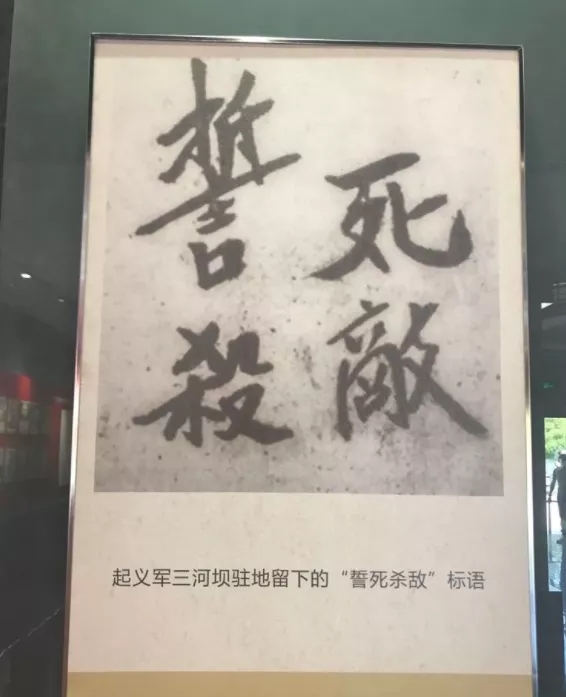 誓死
殺敵
起义军三河坝驻地留下的“誓死杀敌”标语